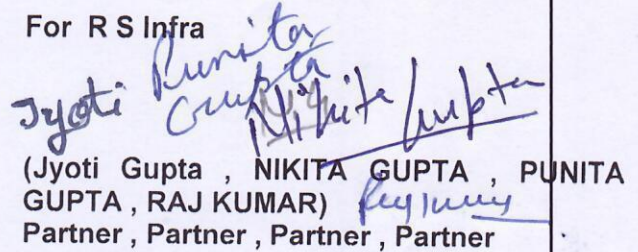 For R S Infra
Punita
Gupta
Jyoti
Nikita Gupta
(Jyoti Gupta , NIKITA GUPTA , PUNITA
GUPTA , RAJ KUMAR)
Partner , Partner , Partner , Partner